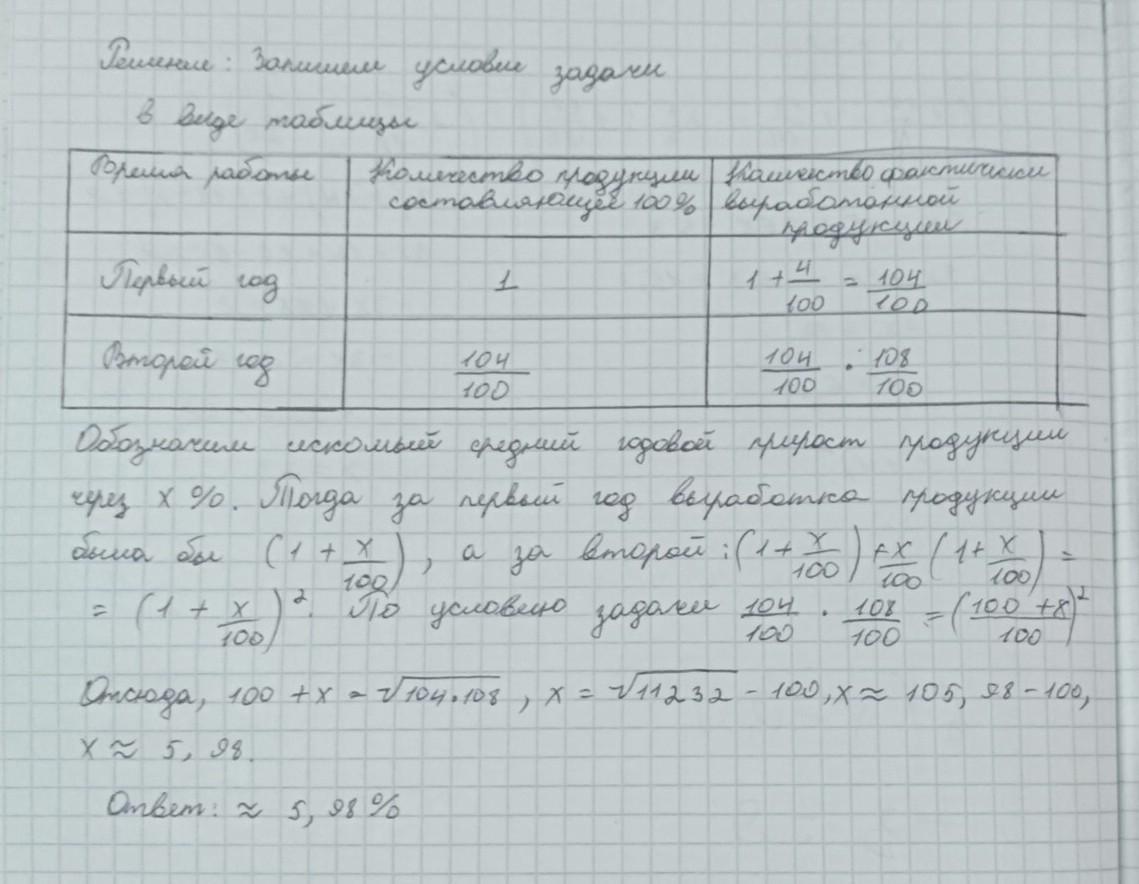 Решение: Запишем условие задачи
в виде таблицы
Время работы | Количество продукции составляющее 100% | Количество фактически выработанной продукции
Первый год | 1 | 1 + 4/100 = 104/100
Второй год | 104/100 | 104/100 · 108/100
Обозначим искомый средний годовой прирост продукции
через x %. Тогда за первый год выработка продукции
была бы (1 + x/100), а за второй: (1 + x/100) + x/100 (1 + x/100) =
= (1 + x/100)². По условию задачи 104/100 · 108/100 = (100 + x/100)²
Отсюда, 100 + x = √104·108, x = √11232 - 100, x ≈ 105,98 - 100,
x ≈ 5,98.
Ответ: ≈ 5,98%